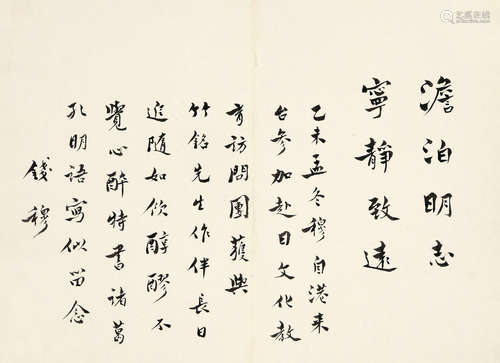 澹泊明志
寧靜致遠
乙未孟冬穆自港來
台參加赴日文化教
育訪問團獲與
竹銘先生作伴長日
追隨如飲醇醪不
覺心醉特書諸葛
孔明語寫似留念
錢穆